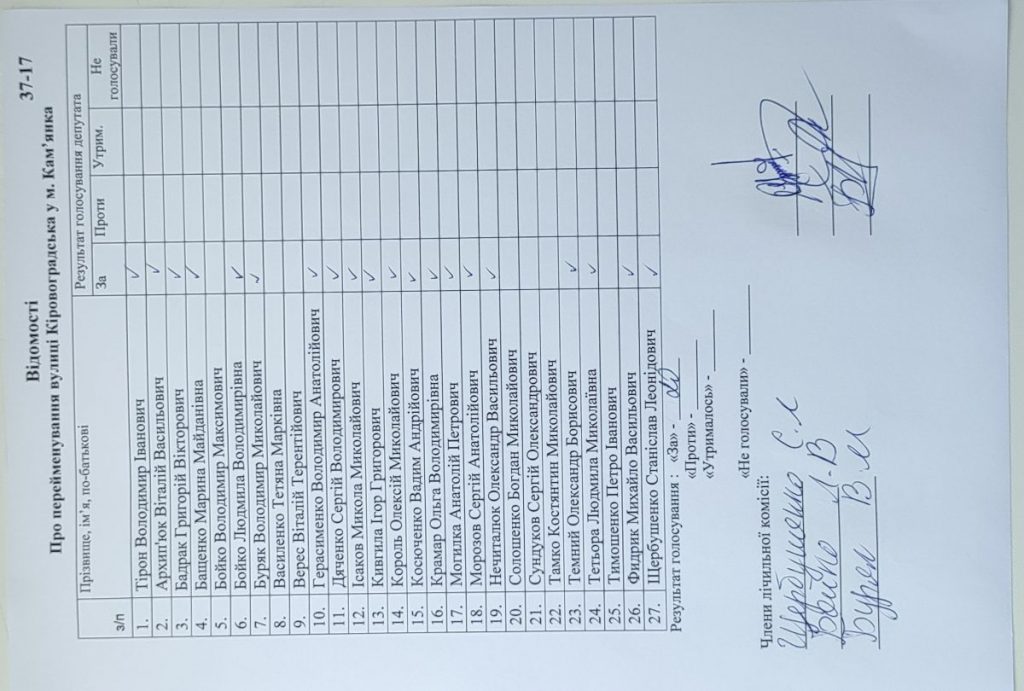 Відомості 37-17
Про перейменування вулиці Кіровоградська у м. Кам'янка
з/п Прізвище, ім'я, по-батькові Результат голосування депутата
За Проти Утрим. Не голосували
1. Тірон Володимир Іванович ✓
2. Архип'юк Віталій Васильович ✓
3. Бадрак Григорій Вікторович ✓
4. Бащенко Марина Майданівна ✓
5. Бойко Володимир Максимович
6. Бойко Людмила Володимирівна ✓
7. Буряк Володимир Миколайович ✓
8. Василенко Тетяна Марківна
9. Верес Віталій Терентійович
10. Герасименко Володимир Анатолійович ✓
11. Дяченко Сергій Володимирович ✓
12. Ісаков Микола Миколайович ✓
13. Кивгила Ігор Григорович ✓
14. Король Олексій Миколайович ✓
15. Косюченко Вадим Андрійович ✓
16. Крамар Ольга Володимирівна ✓
17. Могилка Анатолій Петрович ✓
18. Морозов Сергій Анатолійович ✓
19. Нечиталюк Олександр Васильович ✓
20. Солошенко Богдан Миколайович
21. Сундуков Сергій Олександрович
22. Тамко Костянтин Миколайович
23. Темний Олександр Борисович ✓
24. Тетьора Людмила Миколаївна ✓
25. Тимошенко Петро Іванович
26. Фидрик Михайло Васильович ✓
27. Щербушенко Станіслав Леонідович ✓
Результат голосування : «За» - 20
«Проти» -
«Утрималось» -
«Не голосували» -
Члени лічильної комісії:
Щербушенко С.Л
Бойко Л.В
Буряк В.М